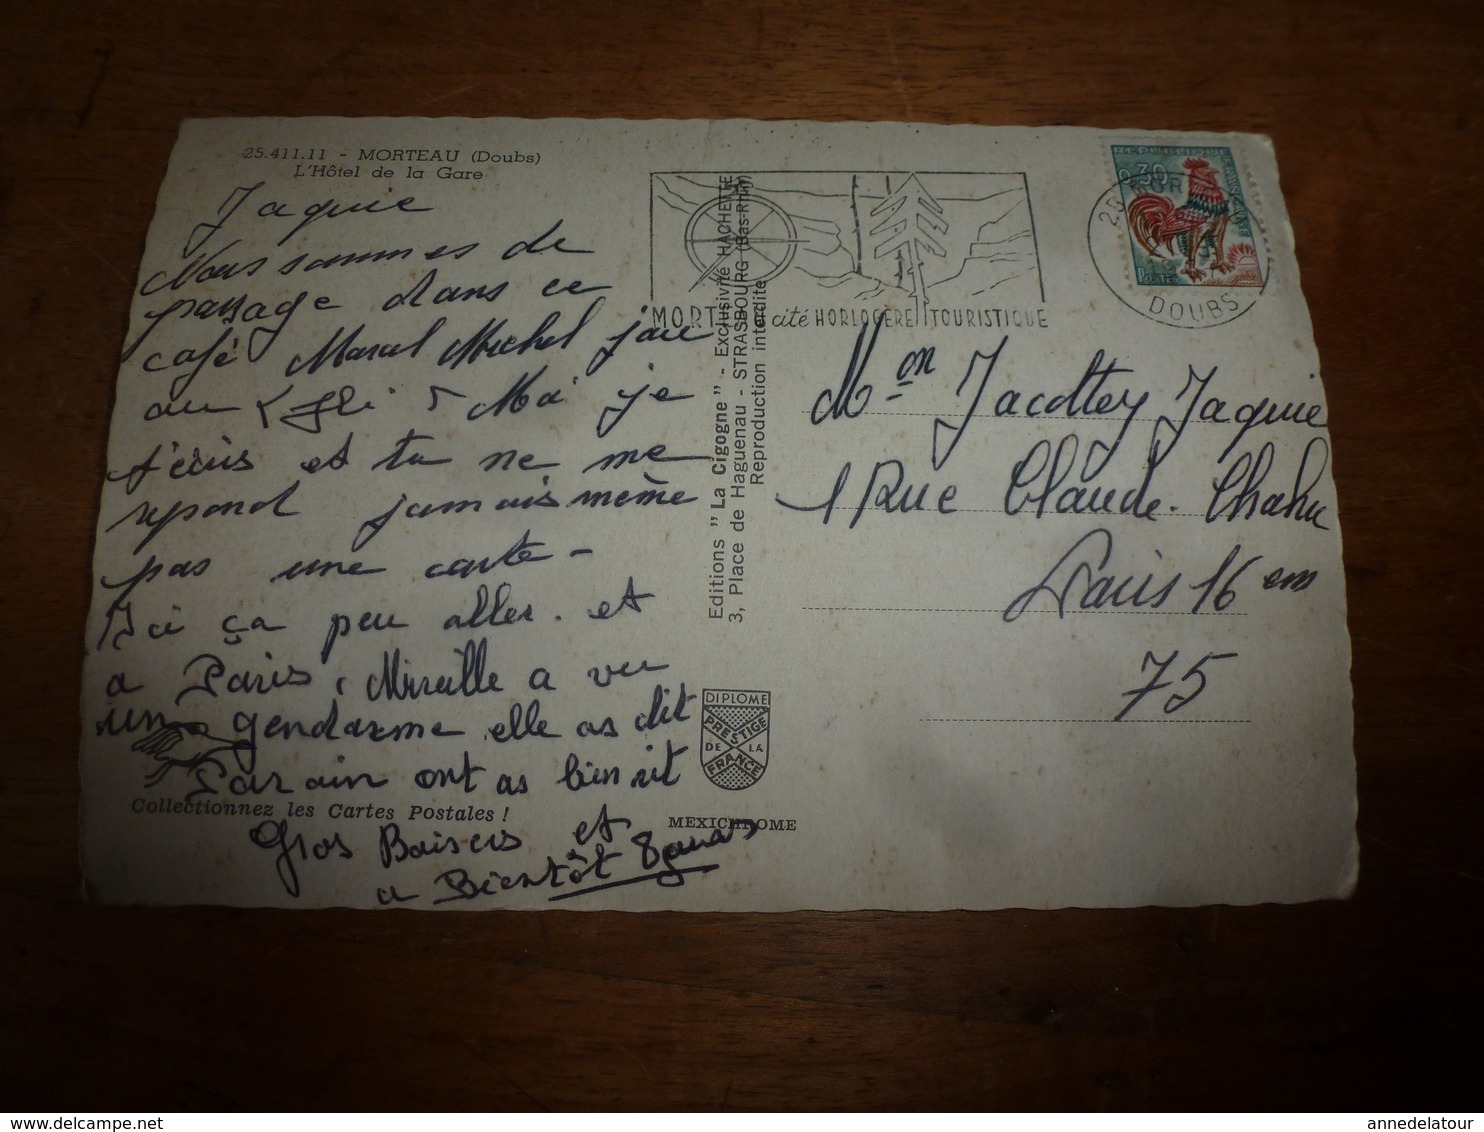 25.411.11 - MORTEAU (Doubs)
L'Hôtel de la Gare
Jaquie
Nous sommes de
passage dans ce
café Marcel Michel joue
au Moi je
t'écris et tu ne me
repond jamais même
pas une carte -
Ici ça peu aller. et
a Paris, Mireille a vu
un gendarme elle as dit
Parain ont as bien rit
Collectionnez les Cartes Postales !
Gros Baisers et
a Bientôt
Editions " La Cigogne " - Exclusivité HACHETTE
3, Place de Haguenau - STRASBOURG (Bas-Rhin)
Reproduction interdite
DIPLOME
PRESTIGE
DE LA
FRANCE
MEXICHROME
MORT cité HORLOGÈRE TOURISTIQUE
0,30
POSTES
DOUBS
Mon Jacottey Jaquie
1 Rue Claude. Chahu
Paris 16 em
75
annedelatour